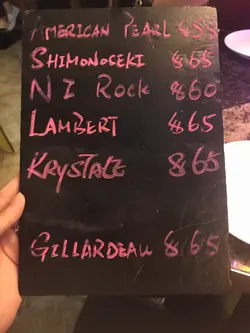 AMERICAN PEARL
SHIMONOSEKI $65
N I ROCK $60
LAMBERT $65
KRYSTALE $65
GILLARDEAU $65